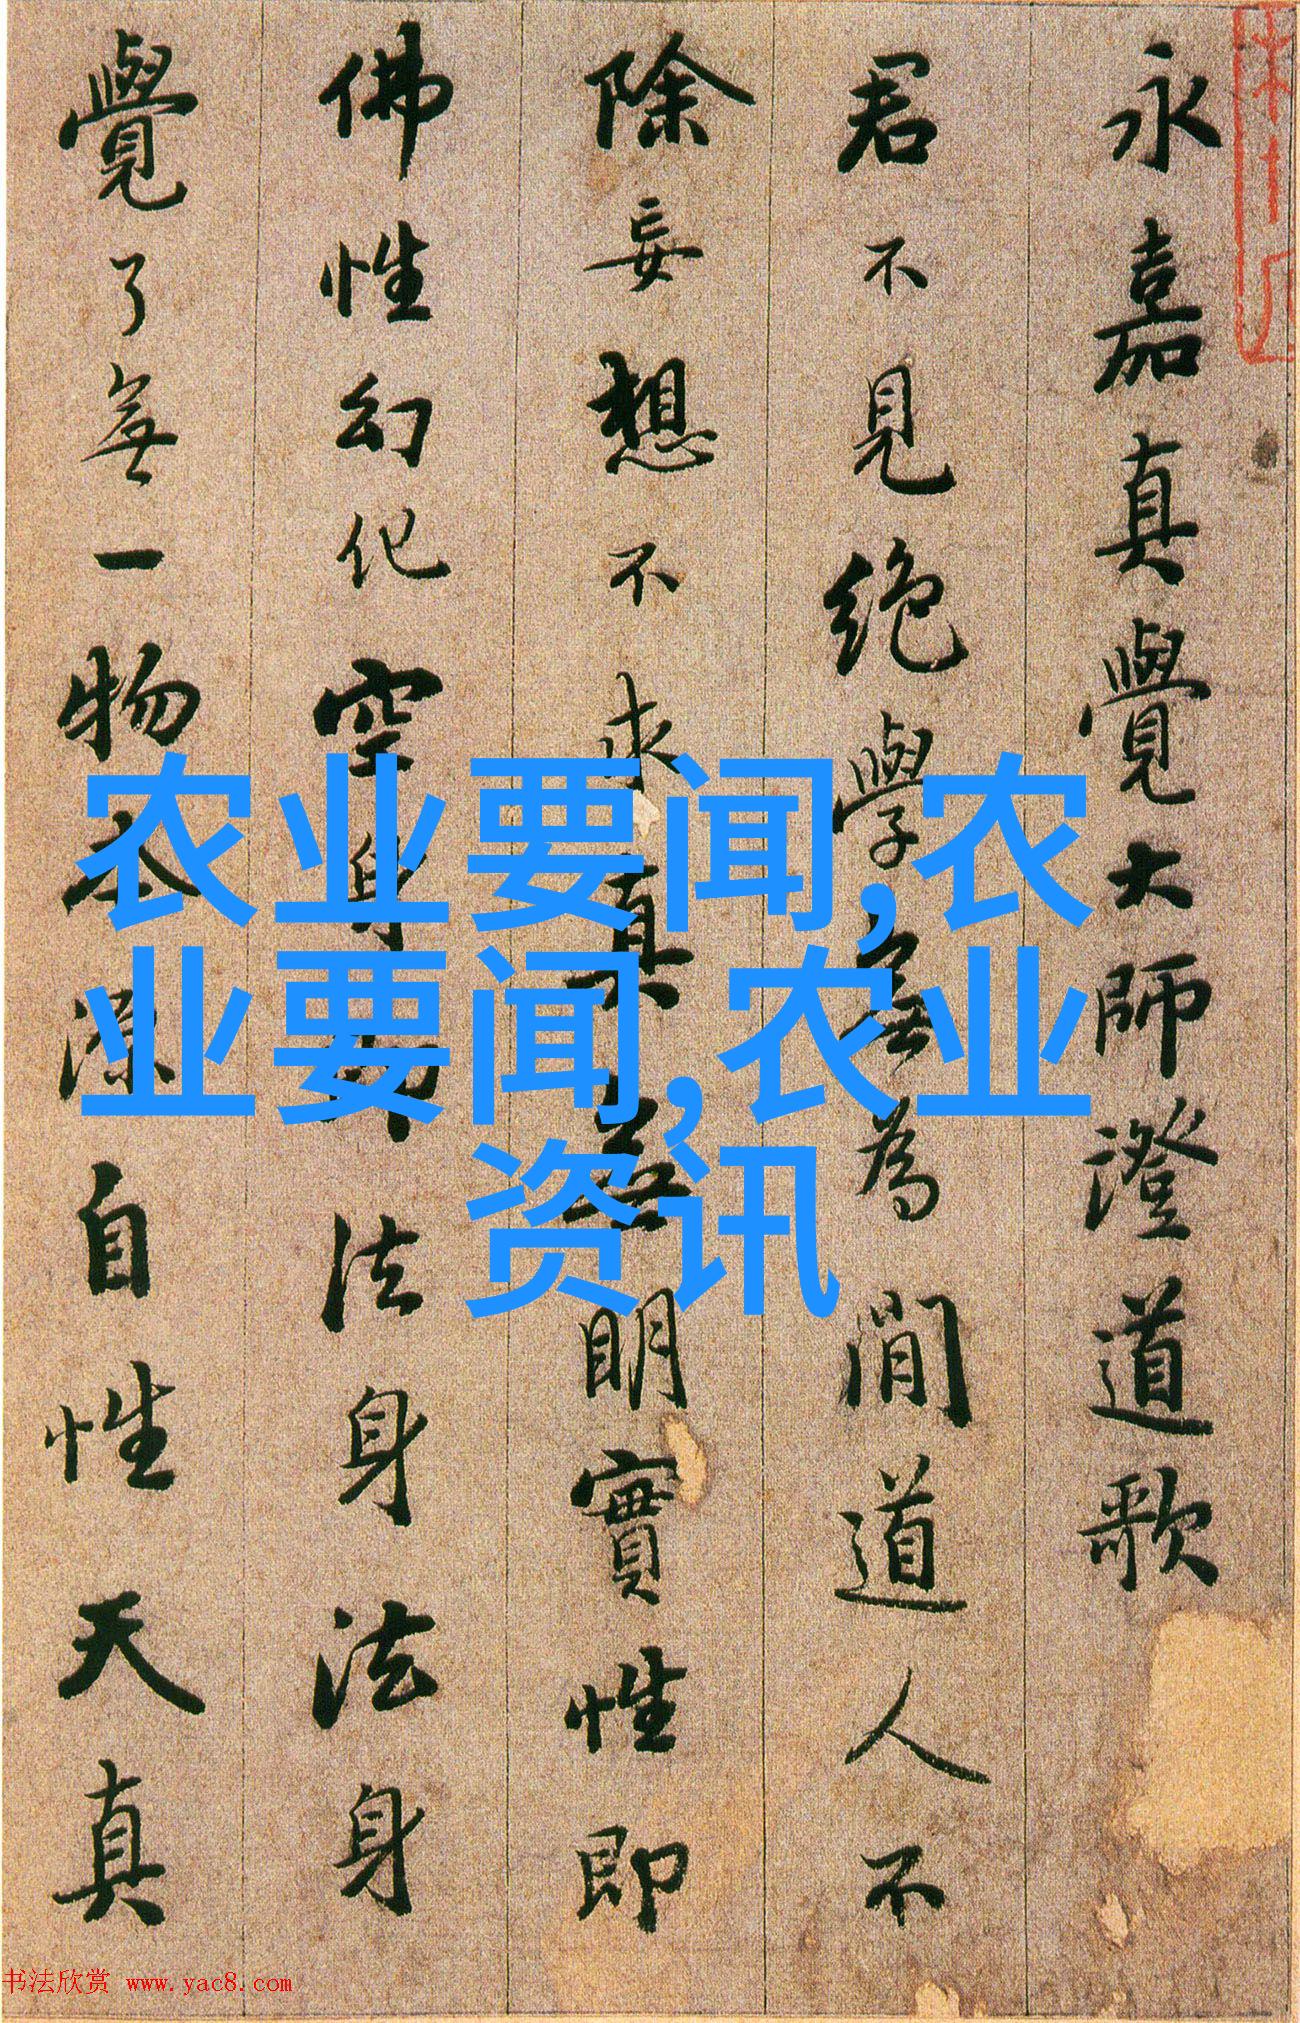 永嘉真覺大師澄道歌
君不見絕學無為閒道人不
除妄想不求真無明實性即
佛性幻化空身即法身法身
覺了無一物本源自性天真
农业要闻,农
业要闻,农业
资讯
书法欣赏 www.yac8.com